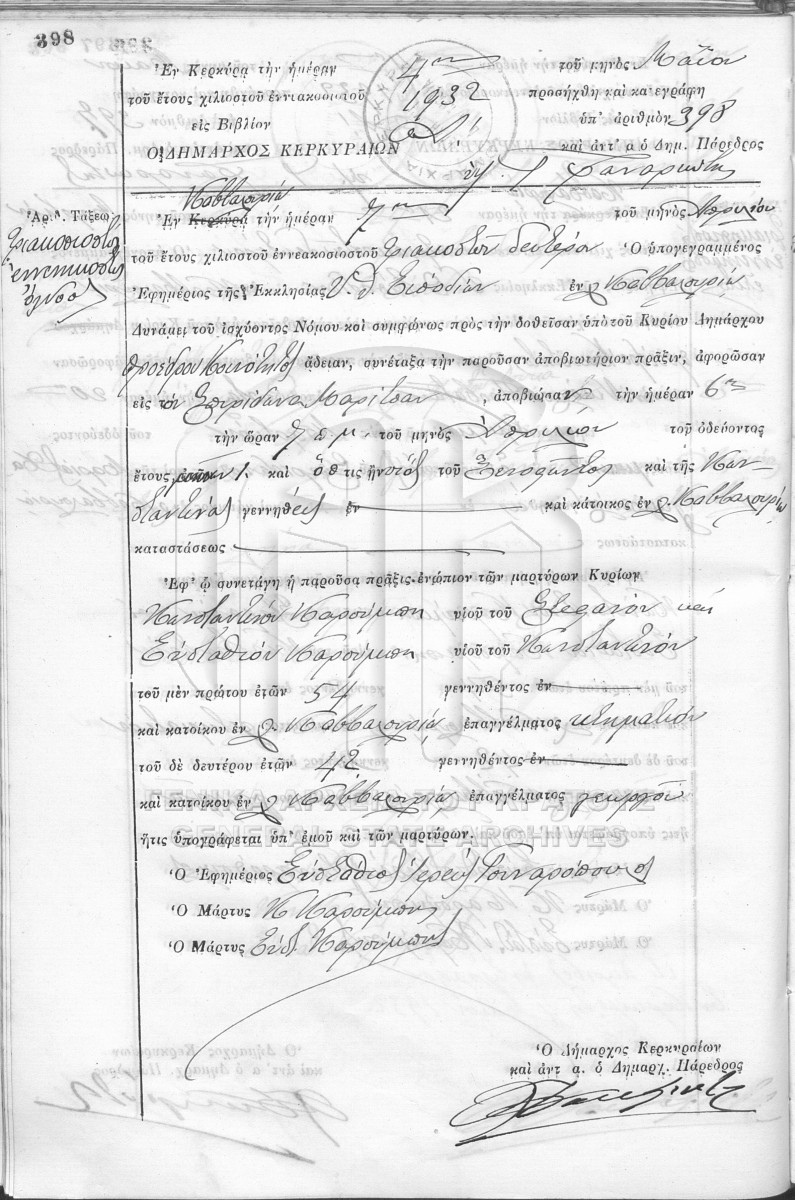 398
Ἐν Κερκύρᾳ τὴν ἡμέραν 4ην τοῦ μηνὸς Μαΐου
τοῦ ἔτους χιλιοστοῦ ἐννιακοσιοστοῦ 1932 προσήχθη καὶ κατεγράφη
εἰς Βιβλίον Α' ὑπ' ἀριθμὸν 398
Ο ΔΗΜΑΡΧΟΣ ΚΕΡΚΥΡΑΙΩΝ καὶ ἀντ' α ὁ Δημ. Πάρεδρος
Καββαλουρίᾳ
Ἀρ. Τάξεως
τριακοσιοστὸς
ἐννενηκοστὸς
ὄγδοος
Ἐν Κερκύρᾳ τὴν ἡμέραν 7ην τοῦ μηνὸς Ἀπριλίου
τοῦ ἔτους χιλιοστοῦ ἐννεακοσιοστοῦ τριακοστοῦ δευτέρου Ὁ ὑπογεγραμμένος
Ἐφημέριος τῆς Ἐκκλησίας Υ. Θ. Εἰσοδίων ἐν χ. Καββαλουρίᾳ
Δυνάμει τοῦ ἰσχύοντος Νόμου καὶ συμφώνως πρὸς τὴν δοθεῖσαν ὑπὸ τοῦ Κυρίου Δημάρχου
Προέδρου Κοινότητος ἄδειαν, συνέταξα τὴν παροῦσαν ἀποβιωτήριον πρᾶξιν, ἀφορῶσαν
εἰς τὸν Σπυρίδωνα Μαρίτσαν, ἀποβιώσαντα τὴν ἡμέραν 6ην
τὴν ὥραν 7 π.μ. τοῦ μηνὸς Ἀπριλίου τοῦ ὁδεύοντος
ἔτους ἐτῶν 1. καὶ ὅστις ἦν υἱὸς τοῦ Ξενοφῶντος καὶ τῆς Κων-
σταντίνας γεννηθεὶς ἐν καὶ κάτοικος ἐν χ. Καββαλουρίᾳ
καταστάσεως
Ἐφ' ᾧ συνετάγη ἡ παροῦσα πρᾶξις ἐνώπιον τῶν μαρτύρων Κυρίων
Κωνσταντίνου Καρούμπη υἱοῦ τοῦ Στεφάνου καὶ
Εὐσταθίου Καρούμπη υἱοῦ τοῦ Κωνσταντίνου
τοῦ μὲν πρώτου ἐτῶν 54 γεννηθέντος ἐν
καὶ κατοίκου ἐν χ. Καββαλουρίᾳ ἐπαγγέλματος κτηματίου
τοῦ δὲ δευτέρου ἐτῶν 42 γεννηθέντος ἐν
καὶ κατοίκου ἐν χ. Καββαλουρίᾳ ἐπαγγέλματος γεωργοῦ
ἥτις ὑπογράφεται ὑπ' ἐμοῦ καὶ τῶν μαρτύρων.
GENERAL STATE ARCHIVES
Ὁ Ἐφημέριος Εὐστάθιος Ἱερεὺς
Ὁ Μάρτυς Κ Καρούμπης
Ὁ Μάρτυς Εὐστ. Καρούμπης
Ὁ Δήμαρχος Κερκυραίων
καὶ ἀντ α. ὁ Δημαρχ. Πάρεδρος